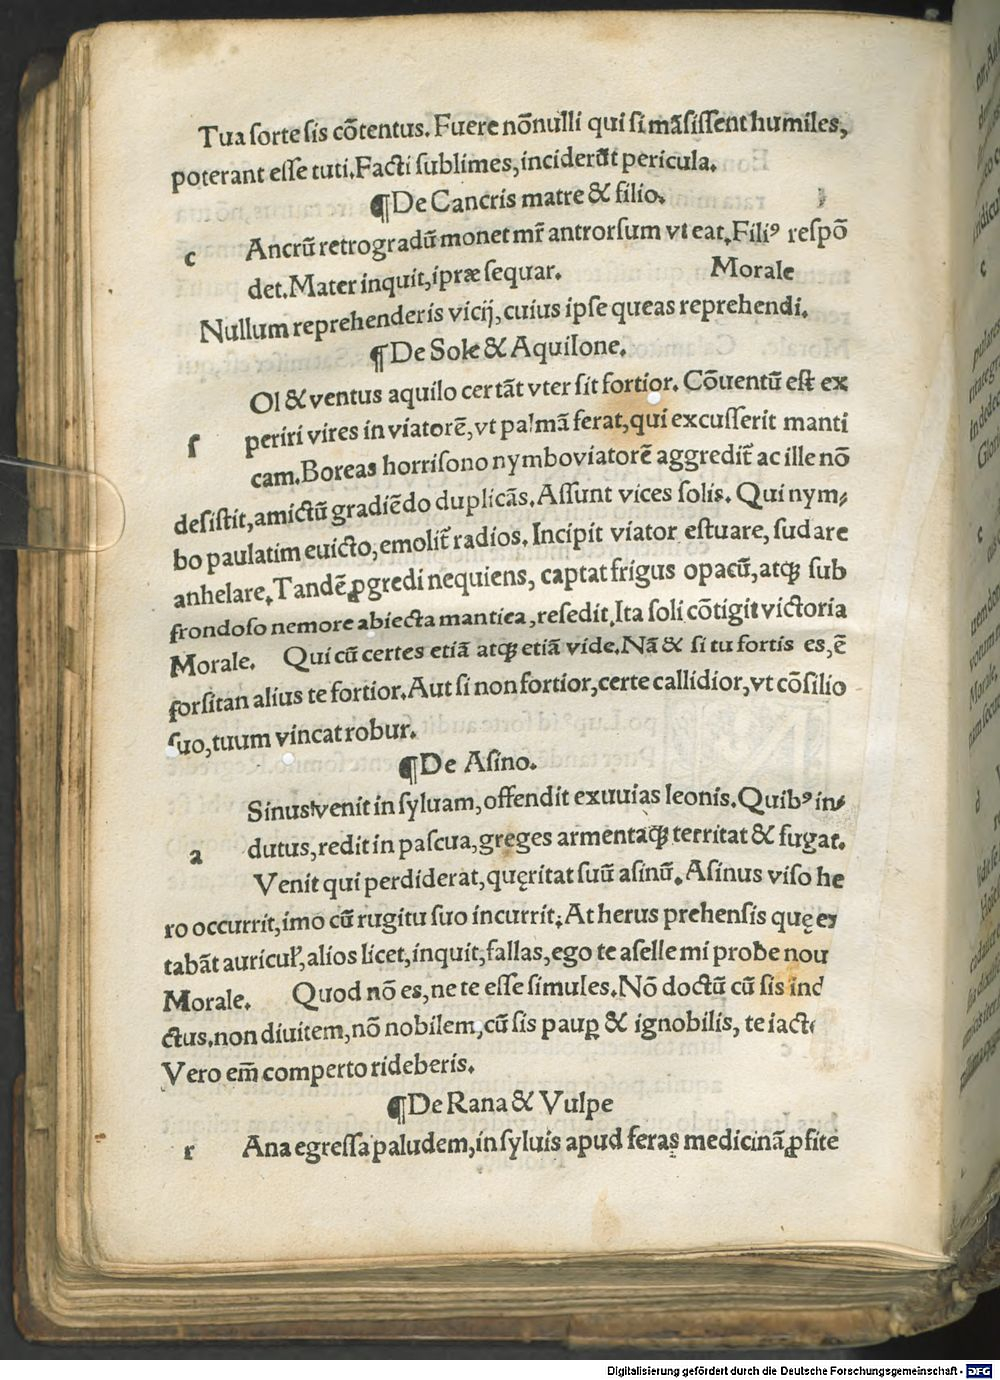 Tua sorte sis cõtentus. Fuere nõnulli qui si mãsissent humiles,
poterant esse tuti. Facti sublimes, inciderãt pericula.
¶De Cancris matre & filio.
c Ancrũ retrogradũ monet mr̃ antrorsum vt eat. Filiꝰ respõ
det. Mater inquit, i præ sequar. Morale
Nullum reprehenderis vicij, cuius ipse queas reprehendi.
¶De Sole & Aquilone.
Ol & ventus aquilo certãt vter sit fortior. Cõuentũ est ex
ſ periri vires in viatorẽ, vt palmã ferat, qui excusserit manti
cam. Boreas horrisono nymbo viatorẽ aggredit̃ ac ille nõ
desistit, amictũ gradiẽdo duplicãs. Assunt vices solis. Qui nym⸗
bo paulatim euicto, emolit̃ radios. Incipit viator estuare, sudare
anhelare. Tandẽ ꝓgredi nequiens, captat frigus opacũ, atqꝫ sub
frondoso nemore abiecta mantica, resedit. Ita soli cõtigit victoria
Morale. Qui cũ certes etiã atqꝫ etiã vide. Nã & si tu fortis es, ẽ
forsitan alius te fortior. Aut si non fortior, certe callidior, vt cõsilio
suo, tuum vincat robur.
¶De Asino.
Sinus venit in syluam, offendit exuuias leonis. Quibꝰ in⸗
a dutus, redit in pascua, greges armentaqꝫ territat & fugat.
Venit qui perdiderat, quęritat suũ asinũ. Asinus viso he
ro occurrit, imo cũ rugitu suo incurrit: At herus prehensis quę ex
tabãt auricul̃, alios licet, inquit, fallas, ego te aselle mi probe nou
Morale. Quod nõ es, ne te esse simules. Nõ doctũ cũ sis ind
ctus, non diuitem, nõ nobilem, cũ sis paup̱ & ignobilis, te iacte
Vero em̃ comperto rideberis.
¶De Rana & Vulpe
r Ana egressa paludem, in syluis apud feras medicinã ꝓfite
Digitalisierung gefördert durch die Deutsche Forschungsgemeinschaft - DFG